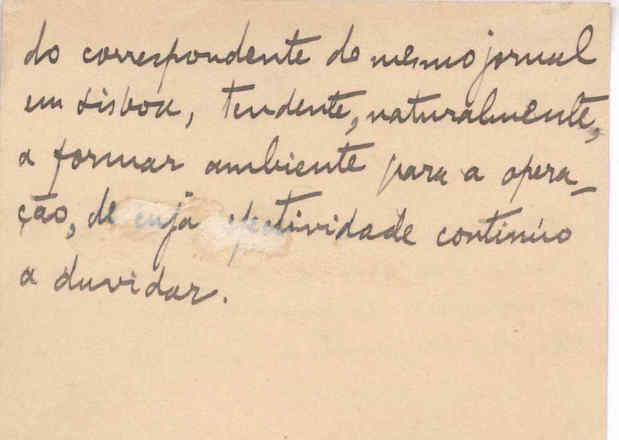 do correspondente do mesmo jornal
em Lisboa, tendente, naturalmente,
a formar ambiente para a opera_
ção, de cuja efectividade continúo
a duvidar.